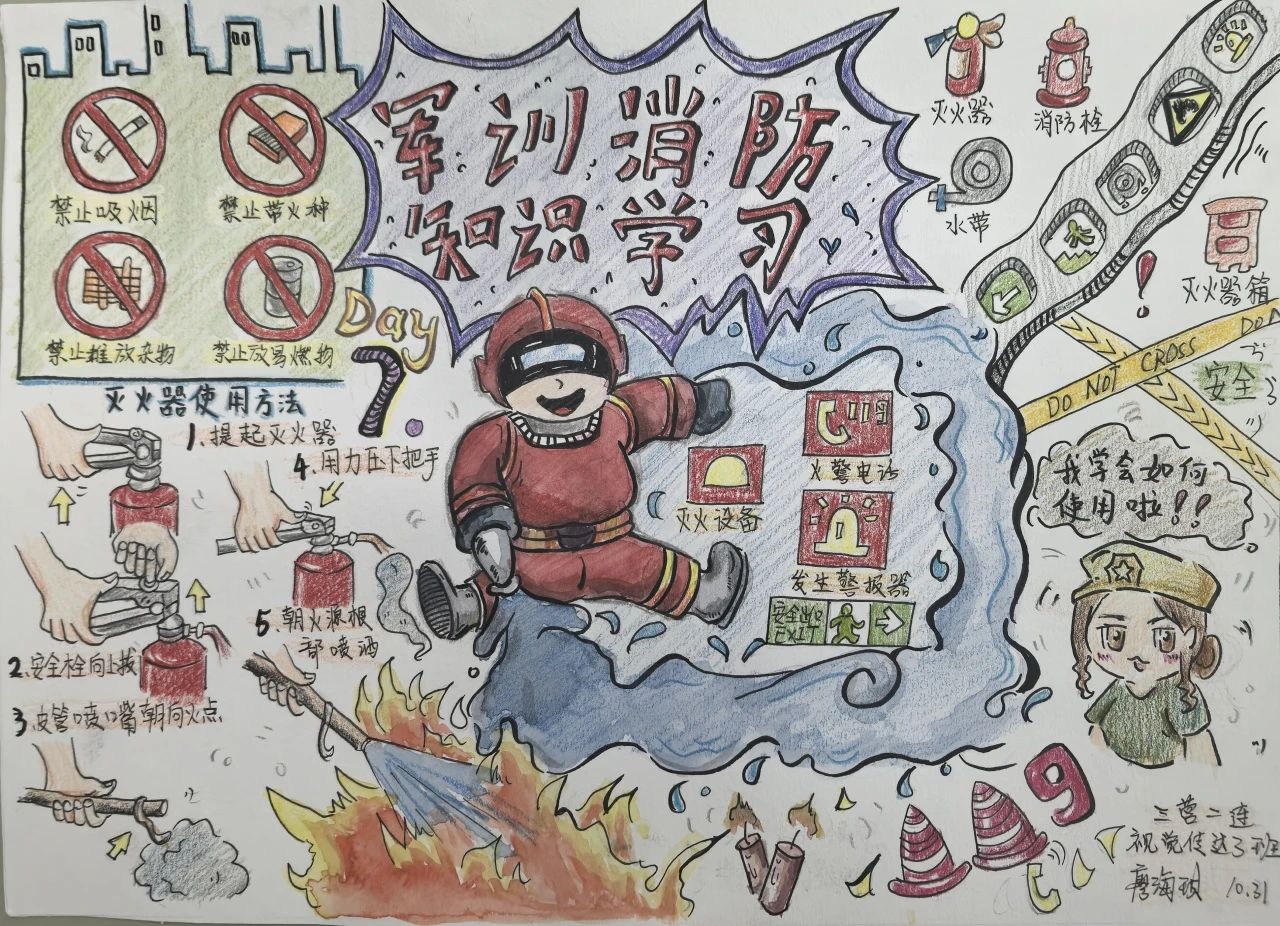 军训消防
知识学习
Day
7.
禁止吸烟
禁止带火种
禁止堆放杂物
禁止放易燃物
灭火器使用方法
1、提起灭火器
4、用力压下把手
2、安全栓向上拔
5、朝火源根
部喷洒
3、皮管喷口嘴朝向火点
灭火器
消防栓
水带
灭火器箱
DO NOT CROSS
DO
安全
119
火警电话
灭火设备
发生警报器
安全出口
EXIT
我学会如何
使用啦!!
9
三营二连
视觉传达3班
10.31